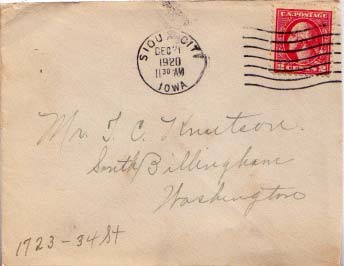 SIOUX CITY
DEC 21
1920
11 30 AM
IOWA
U.S. POSTAGE
2 CENTS 2
Mr. T. C. Knutson.
South Billingham
Washington
1723-34 St